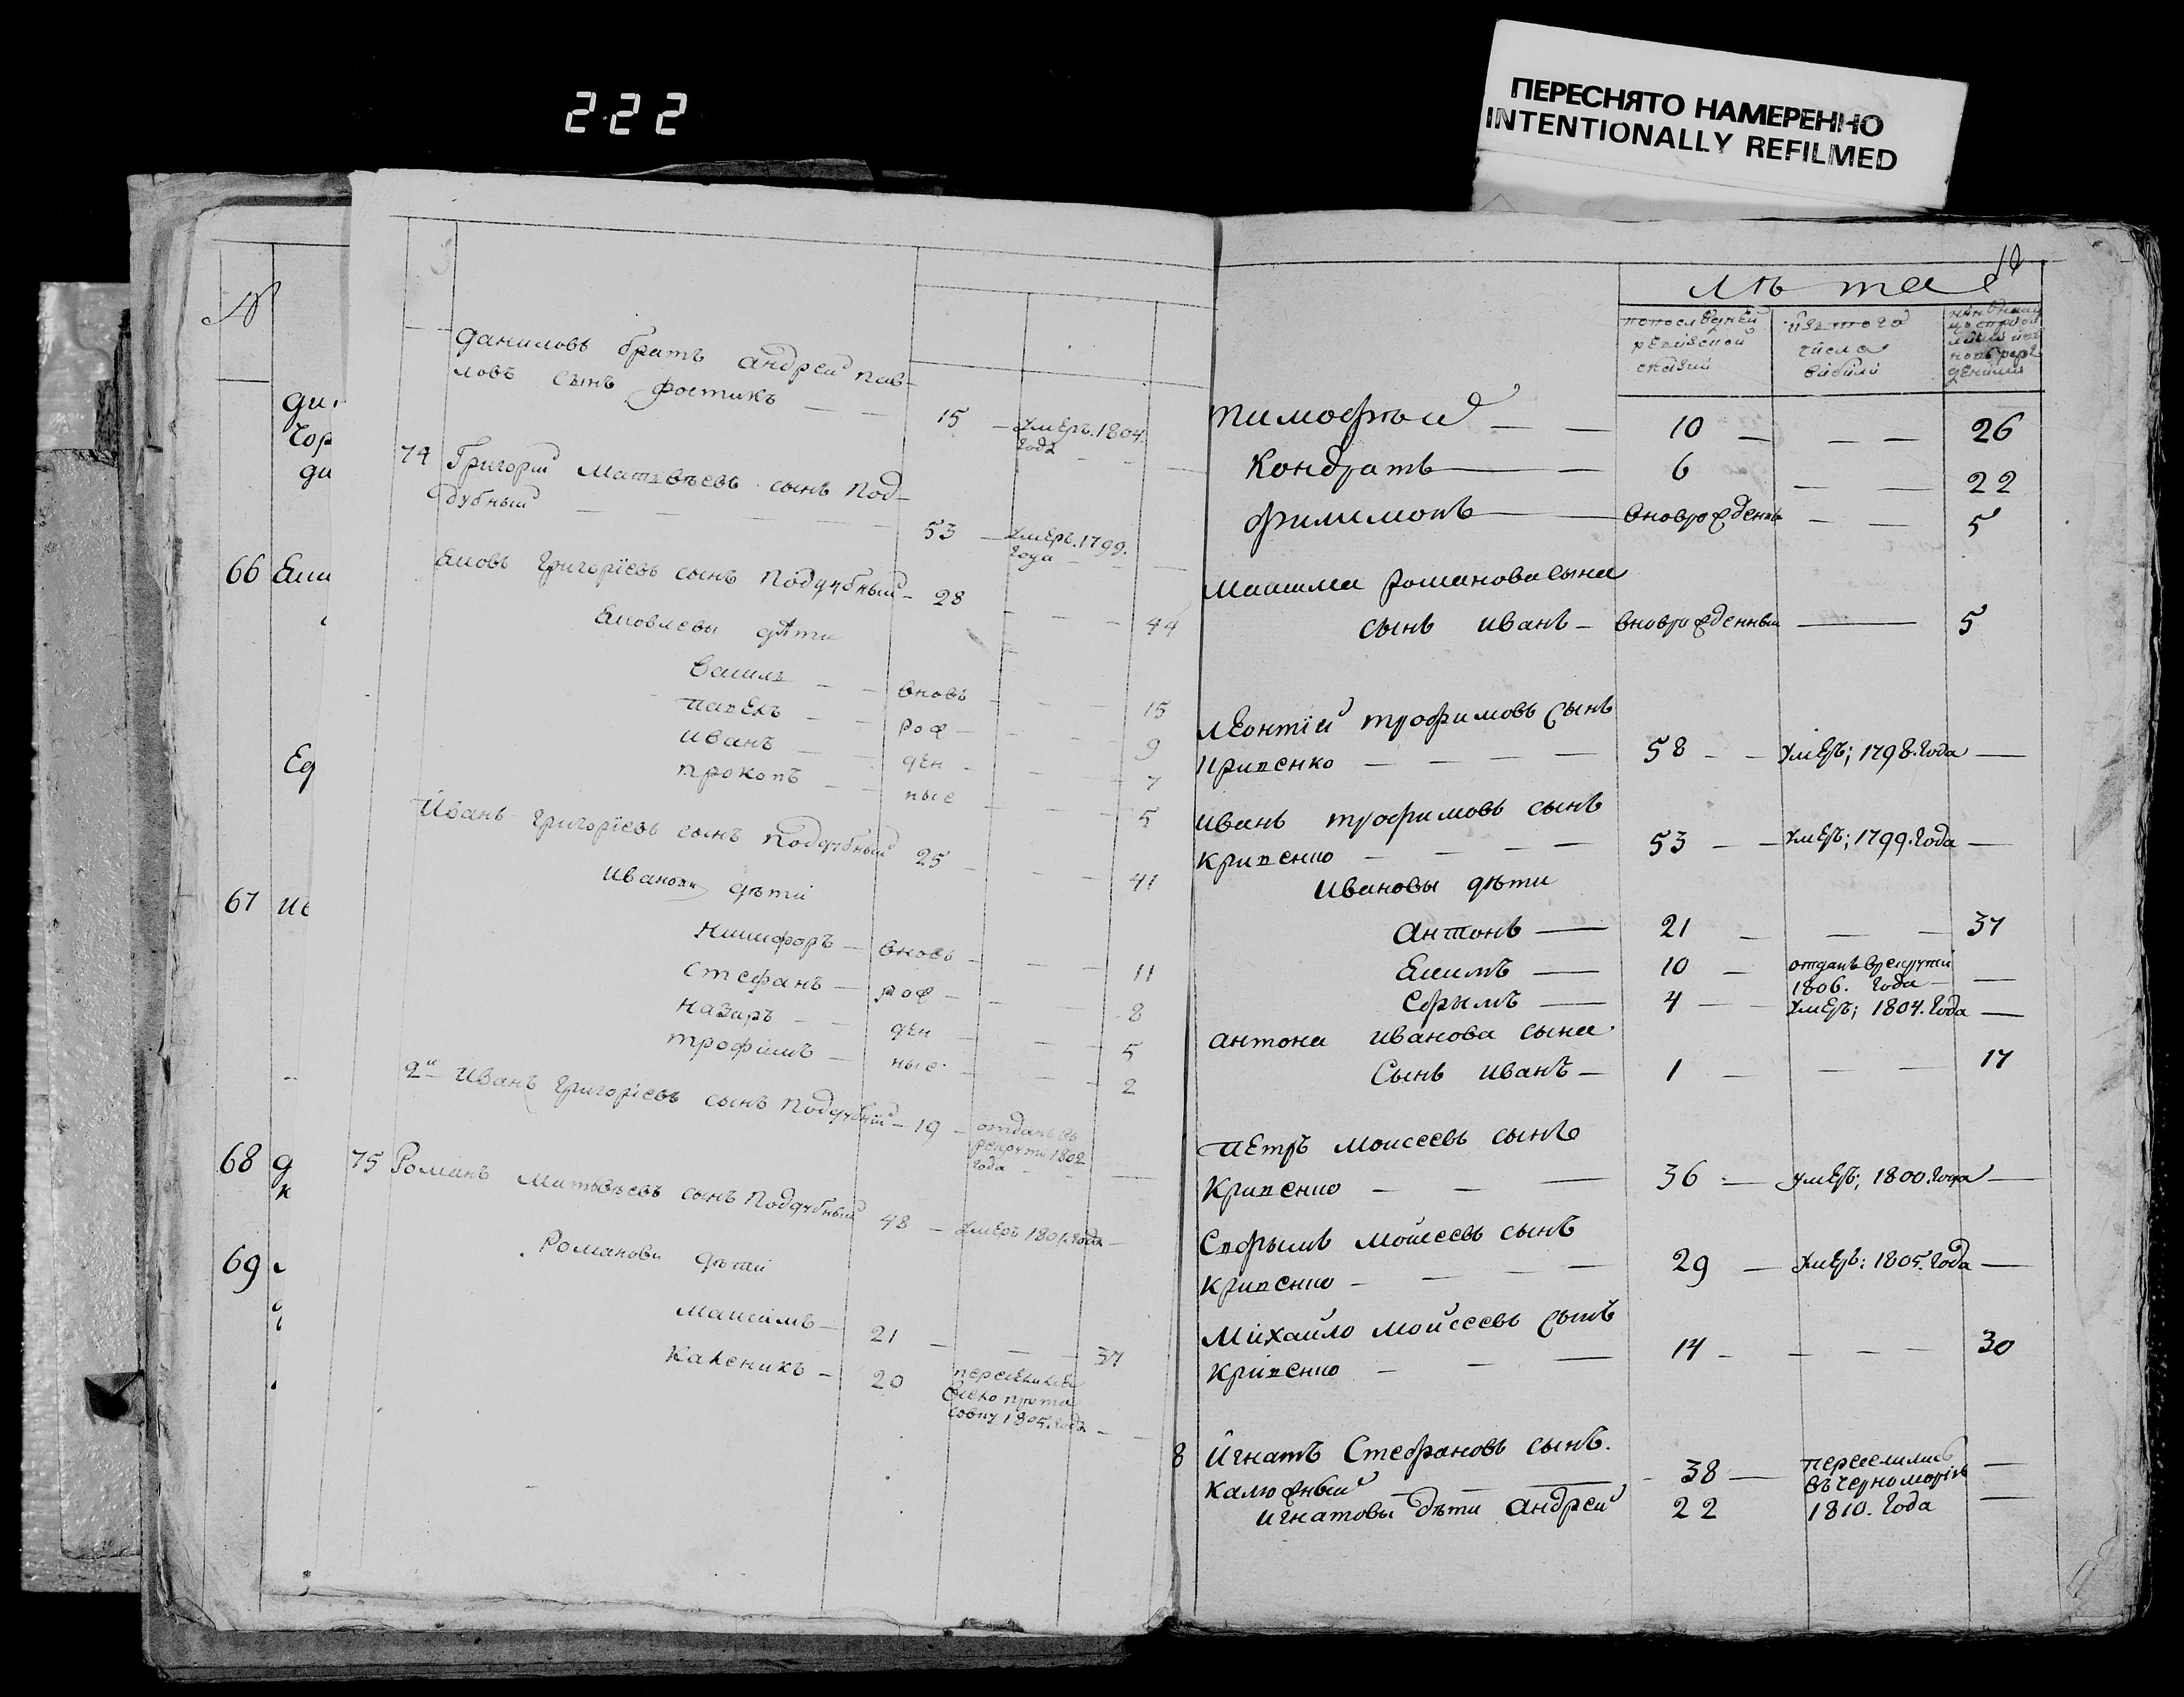 222
ПЕРЕСНЯТО НАМЕРЕННО
INTENTIONALLY REFILMED
№
66
67
68
69
Даниловъ братъ андрей пав-
ловъ сынъ фостикъ — — 15 — умеръ. 1804. года
74 Григорий Матвѣевъ сынъ Под-
дубный — — — 53 — умеръ. 1799. года
Яковъ Григорїевъ сынъ Поддубный — 28 — — 44
Яковлевы дѣти
Василь — — вновь — — 15
павелъ — — рож — — 9
иванъ — — ден — — 7
прокопъ — — ные — — 5
Иванъ Григорїевъ сынъ Поддубный 25 — — 41
Ивановы дѣти
Никифоръ — вновь — — 11
Стефанъ — рож — — 8
Назаръ — — ден — — 5
трофимъ — ные — — 2
2й Иванъ Григорїевъ сынъ Поддубный — 19 — отданъ въ рекруты 1802 года —
75 Романъ Матвѣевъ сынъ Поддубный 48 — умеръ 1801. года —
Романовы дѣти
Максимъ — 21 — — 37
Каленикъ — 20 1805. года —
лѣта
попоследней ревизской сказки
изъ того числа выбыли
тимофѣй — — 10 — — — 26
Кондратъ — — 6 — — 22
филимонъ — вновророжденны — — 5
Максима романова сына
сынъ иванъ — вноврожденный — 5
Леонтїй трофимовъ сынъ
Крипенко — — — — 58 — — умеръ; 1798. года —
иванъ трофимовъ сынъ
крипенко — — — — 53 — — умеръ; 1799. года —
ивановы дѣти
антонъ — 21 — — — 37
Якимъ — 10 — отданъ врекруты 1806. года —
Ефрымъ — 4 — — умеръ; 1804. года —
антона иванова сына
Сынъ иванъ — 1 — — — 17
петръ моисеевъ сынъ
крипенко — — — 36 — умеръ; 1800. года —
моисеевъ сынъ
крипенко — — — — 29 — умеръ: 1805. года —
михайло моисеевъ сынъ
крипенко — — — 14 — — — — 30
8 Игнатъ Стефановъ сынъ.
Калюжный — — — 38 — переселились въ черноморїю —
игнатовы дѣти андрей 22 1810. года —